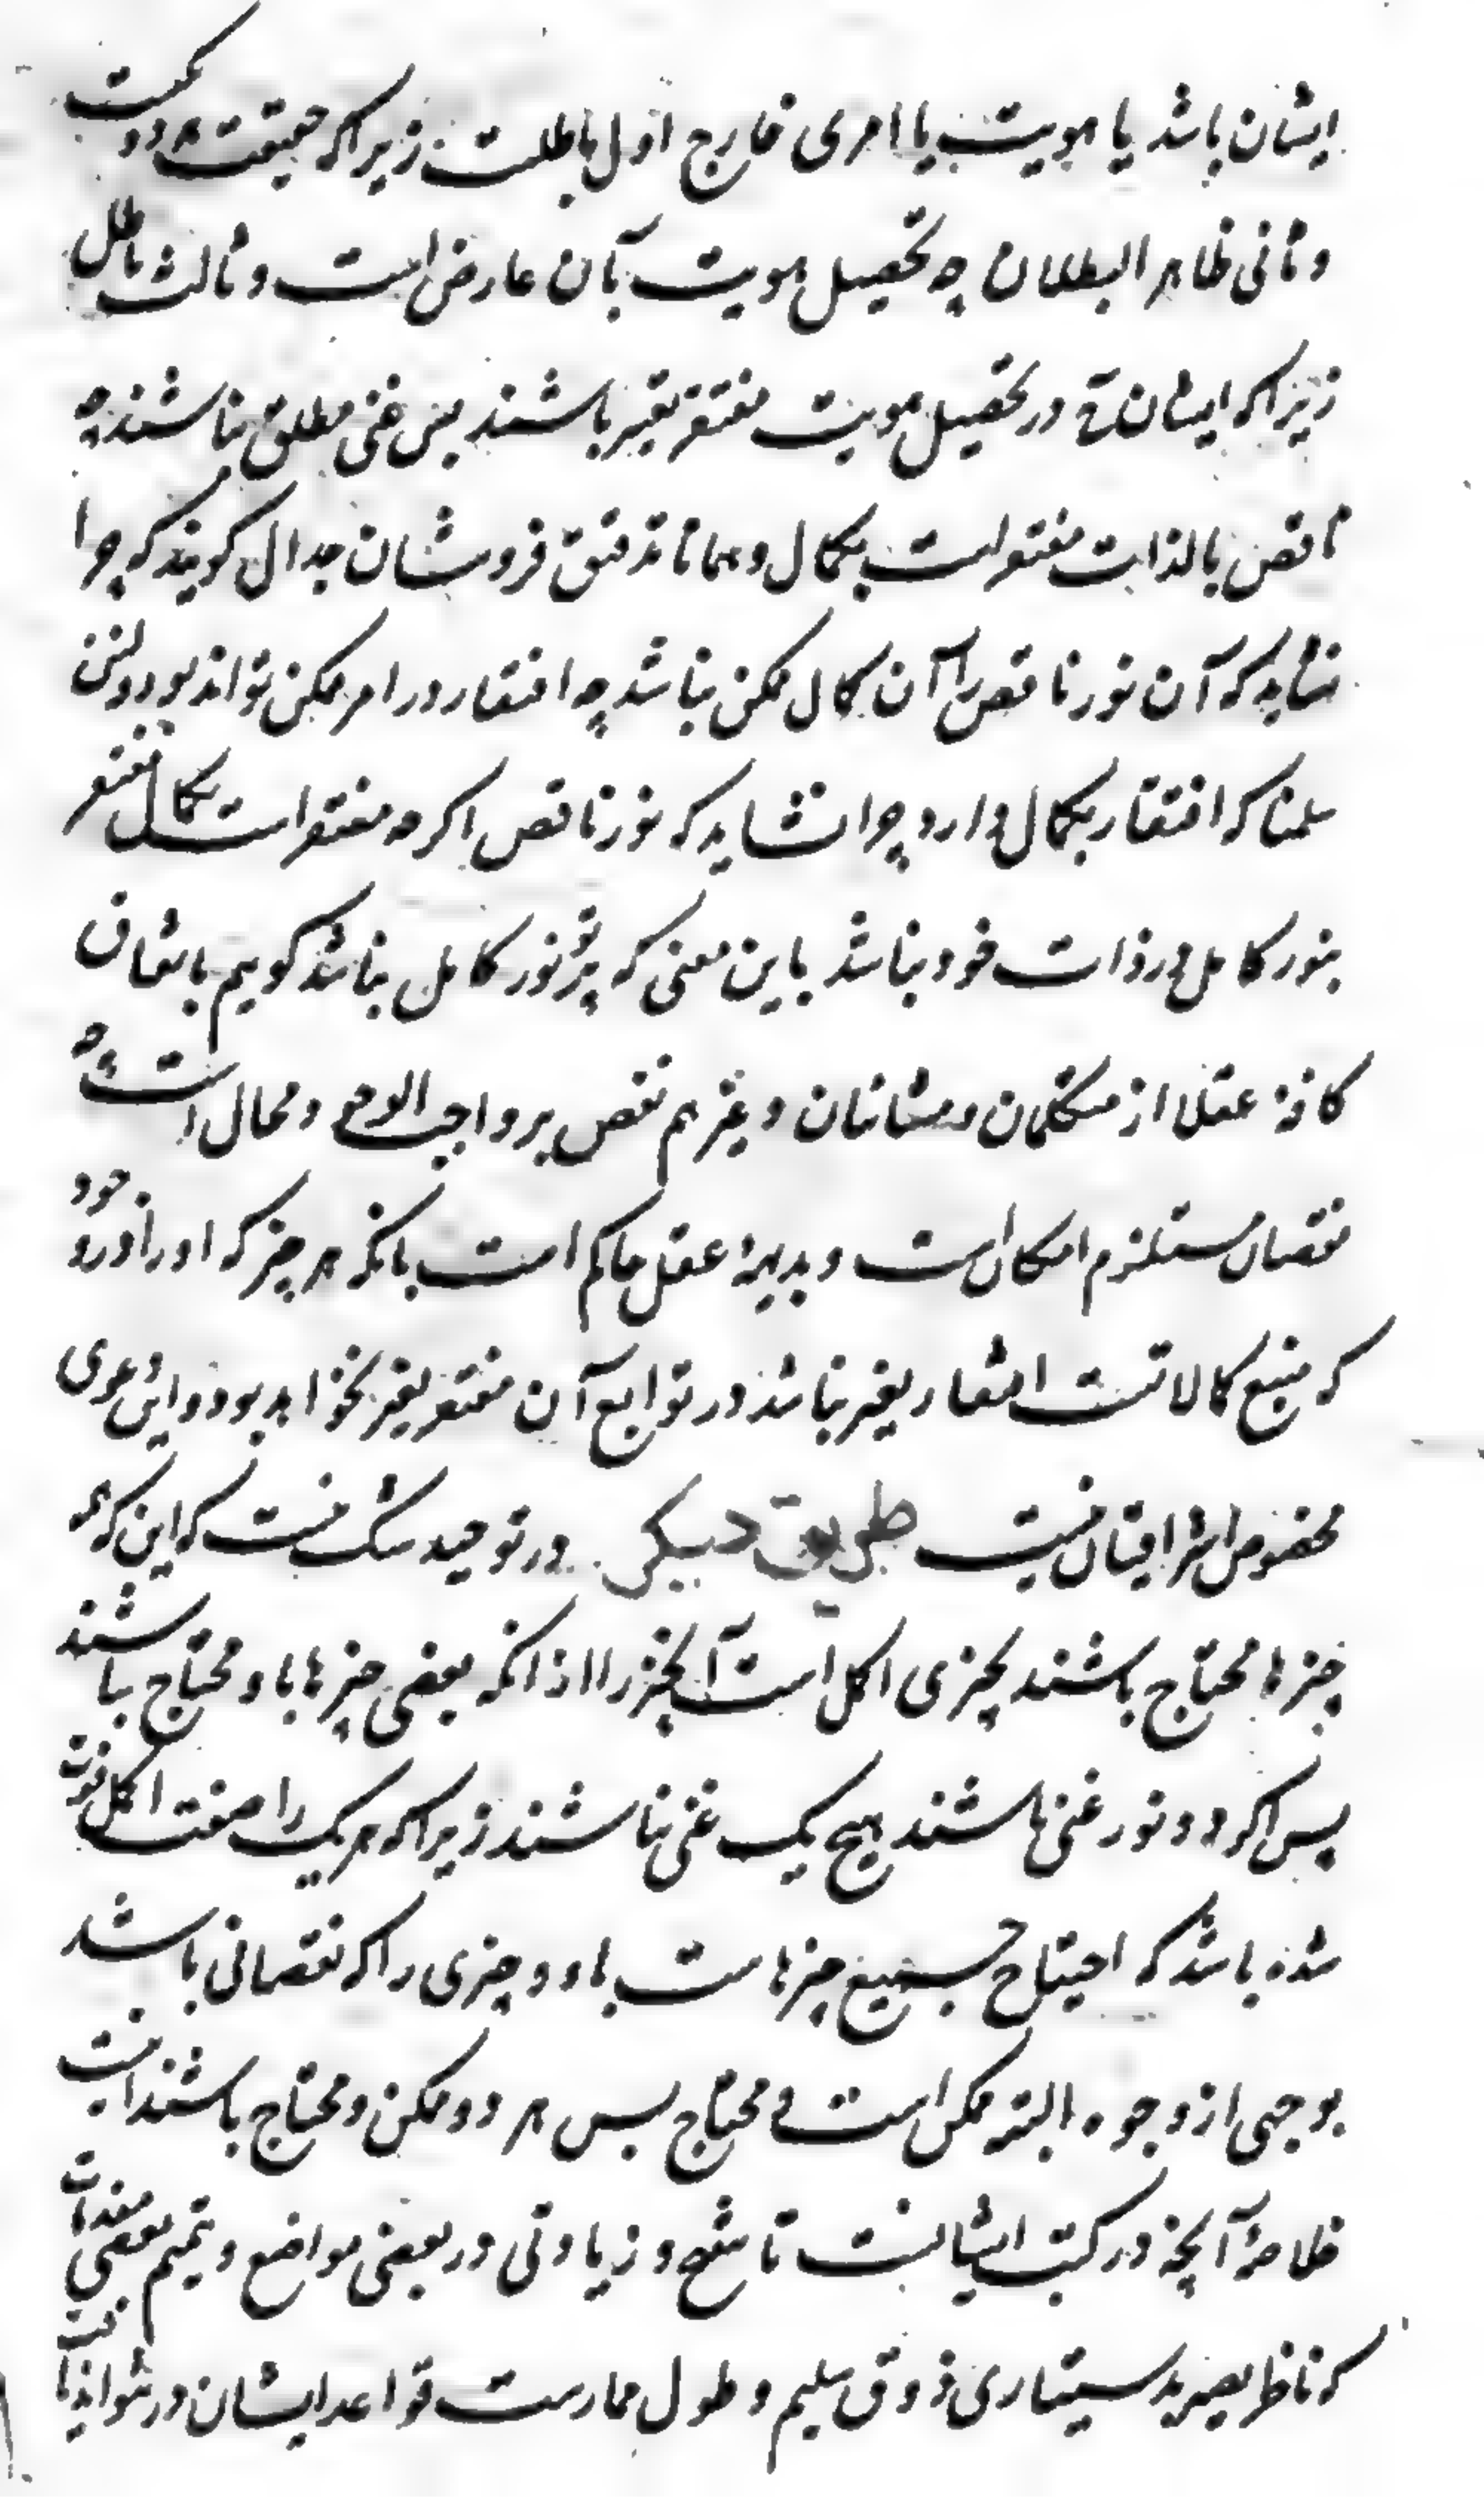 ایشان باشد یا هویت یا امری خارج اول باطلست زیراکه حقیقت هر دو یکیست
و ثانی ظاهر البطلان چه تحصیل هویت بآن عارض است و ثالث باطل
زیراکه ایشان در تحصیل هویت مفتقر بغیر باشند پس غنی مطلق نباشند چه
ناقص بالذات مفتقر است بکمال و همانا تدقیق فروشان جدال گویند که چرا
نشاید که آن نور ناقص را آن کمال ممکن نباشد چه افتقار در امر ممکن تواند بود و لئن
سلمنا که افتقار بکمال دارد چرا نشاید که نور ناقص اگرچه مفتقر است بکمال مفتقر
بنور کامل در ذات خود نباشد باین معنی که پرتو نور کامل نباشد گویم باتفاق
کافه عقلا از متکلمان و مشائیان و غیرهم نقص بر واجب الوجود محال است چه
نقصان مستلزم امکان است و بدیهه عقل حاکم است بانکه هر چیز که او را در وجود
که منبع کمالاتست افتقار بغیر نباشد در توابع آن مفتقر بغیر نخواهد بود و این دعوی
مخصوص اشراقیان نیست طریق دیگر در توحید شک نیست که این که همه
چیزها محتاج باشند بچیزی اکمل است آنچیز را از آنکه بعضی چیزها باو محتاج باشند
پس اگر دو نور غنی باشند هیچ یک غنی نباشند زیراکه هر یک را صفت اکمل فوت
شده باشد که احتیاج جمیع چیزهاست باو و چیزی را که نقصانی باشد
بوجهی از وجوه البته ممکن است و محتاج پس هر دو ممکن و محتاج باشند اینست
خلاصه آنچه در کتب ایشانست با تنقیح و زیادتی در بعضی مواضع و تتمیم بعضی مقدمات
که ناظر بصیر بدستیاری ذوق سلیم و طول ممارست قواعد ایشان در تواند یافت